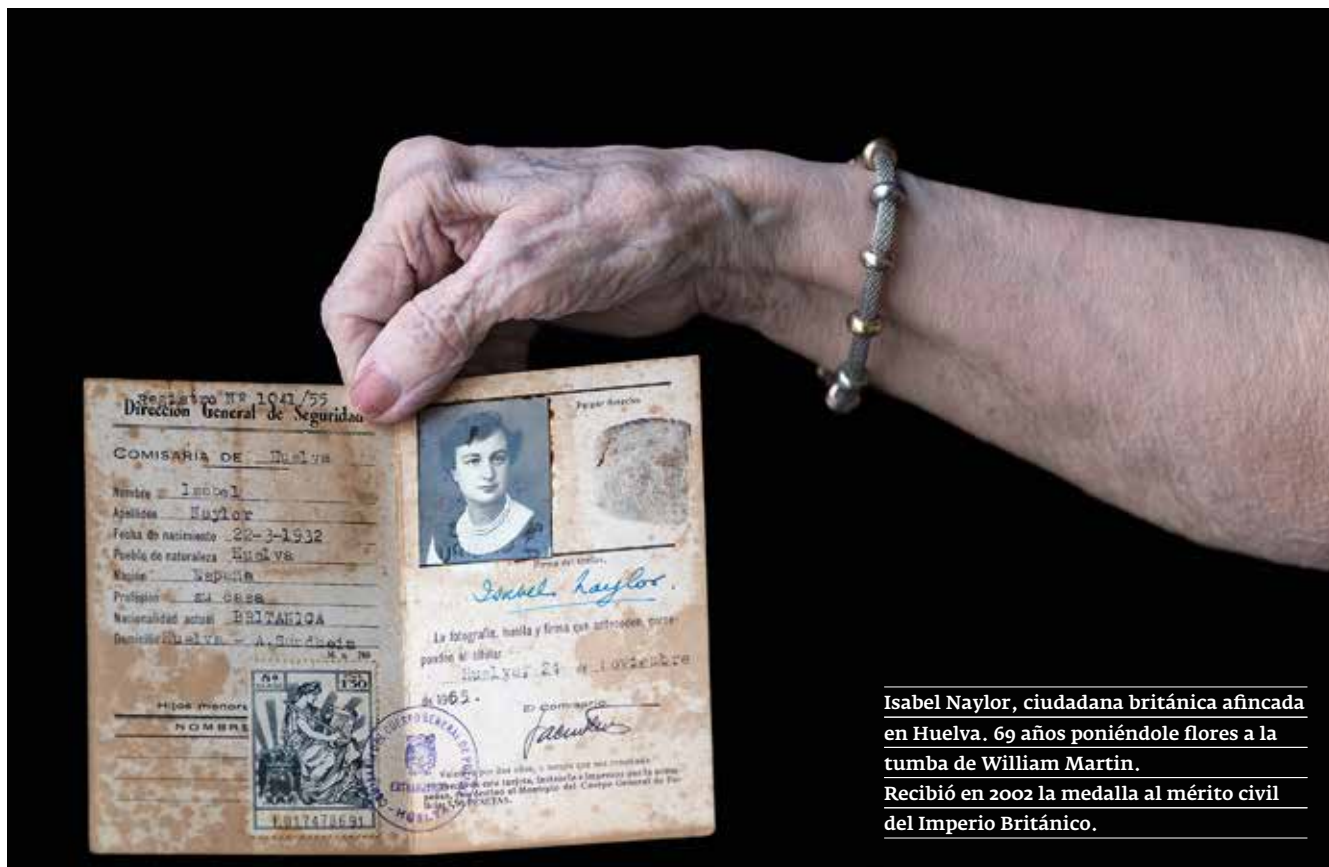 Registro Nº 1041/55
Dirección General de Seguridad
COMISARÍA DE Huelva
Nombre Isabel
Apellidos Naylor
Fecha de nacimiento 22-3-1932
Pueblo de naturaleza Huelva
Nación España
Profesión su casa
Nacionalidad actual BRITANICA
Domicilio Huelva - A. Sundheim
Hijos menores
NOMBRE
Nº
130
1017478691
Firma del titular,
Isabel Naylor.
La fotografía, huella y firma que anteceden, corres-
ponden al titular
Huelva, 24 de noviembre
de 1965.
El Comisario
CUERPO GENERAL DE
HUELVA
PESETAS.
Isabel Naylor, ciudadana británica afincada
en Huelva. 69 años poniéndole flores a la
tumba de William Martin.
Recibió en 2002 la medalla al mérito civil
del Imperio Británico.